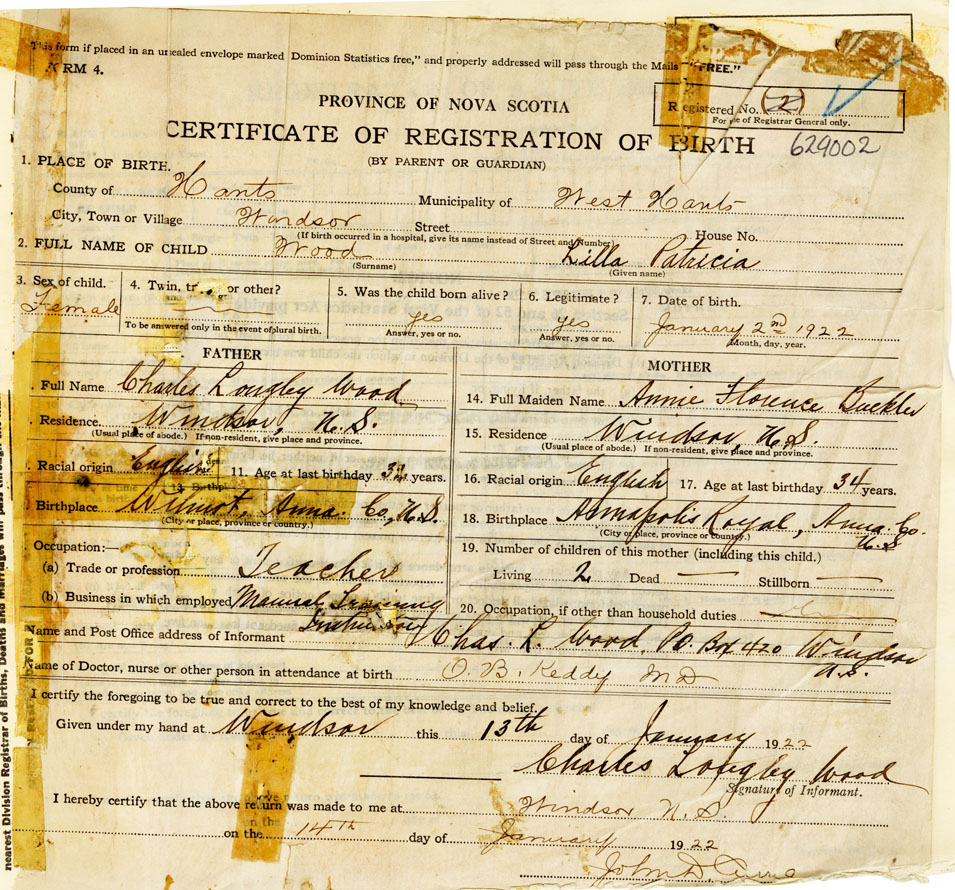 This form if placed in an unsealed envelope marked Dominion Statistics free," and properly addressed will pass through the Mails "FREE."
FORM 4.
PROVINCE OF NOVA SCOTIA
Registered No. (2)
For use of Registrar General only.
CERTIFICATE OF REGISTRATION OF BIRTH
629002
(BY PARENT OR GUARDIAN)
1. PLACE OF BIRTH.
County of Hants Municipality of West Hants
City, Town or Village Windsor Street House No.
(If birth occurred in a hospital, give its name instead of Street and Number)
2. FULL NAME OF CHILD Wood Lilla Patricia
(Surname) (Given name)
3. Sex of child. 4. Twin, or other? 5. Was the child born alive? 6. Legitimate? 7. Date of birth.
Female yes yes January 2nd 1922
To be answered only in the event of plural birth. Answer, yes or no. Answer, yes or no. Month, day, year.
FATHER MOTHER
Full Name Charles Longley Wood 14. Full Maiden Name Annie Florence Buckler
Residence Windsor, N.S. 15. Residence Windsor, N.S.
(Usual place of abode.) If non-resident, give place and province. (Usual place of abode.) If non-resident, give place and province.
Racial origin English 11. Age at last birthday 32 years. 16. Racial origin English 17. Age at last birthday 34 years.
Birthplace Wilmot, Anna. Co, N.S. 18. Birthplace Annapolis Royal, Anna. Co. N.S
(City or place, province or country.) (City or place, province or country.)
Occupation:— 19. Number of children of this mother (including this child.)
(a) Trade or profession Teacher Living 2 Dead — Stillborn —
(b) Business in which employed Manual Training Instructor 20. Occupation, if other than household duties —
Name and Post Office address of Informant Chas. L. Wood P.O. Box 420 Windsor N.S.
Name of Doctor, nurse or other person in attendance at birth O. B. Keddy M D
I certify the foregoing to be true and correct to the best of my knowledge and belief.
Given under my hand at Windsor this 13th day of January 1922
Charles Longley Wood
Signature of Informant.
I hereby certify that the above return was made to me at Windsor N.S.
on the 14th day of January 1922
John D.
nearest Division Registrar of Births, Deaths and Marriages will pass through